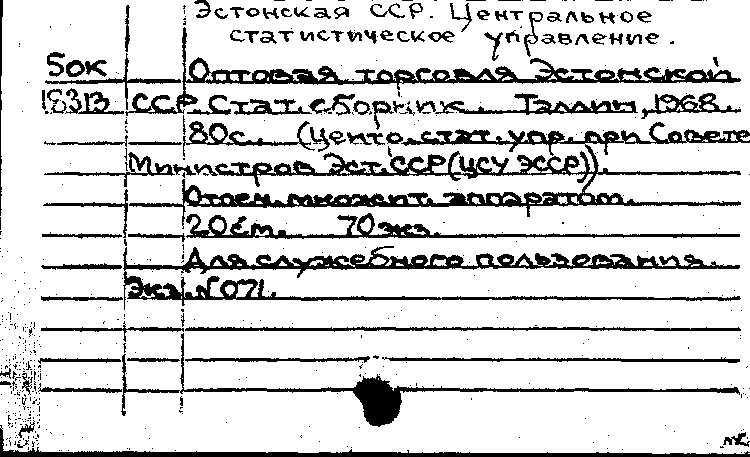 Эстонская ССР. Центральное
статистическое управление.
5ок Оптовая торговля Эстонской
18313 ССР. Стат. сборник. Таллин, 1968.
80с. (Центр. стат. упр. при Совете
Министров Эст. ССР (ЦСУ ЭССР)).
Отпеч. множит. аппаратом.
20см. 70 экз.
Для служебного пользования.
Экз. N 071.